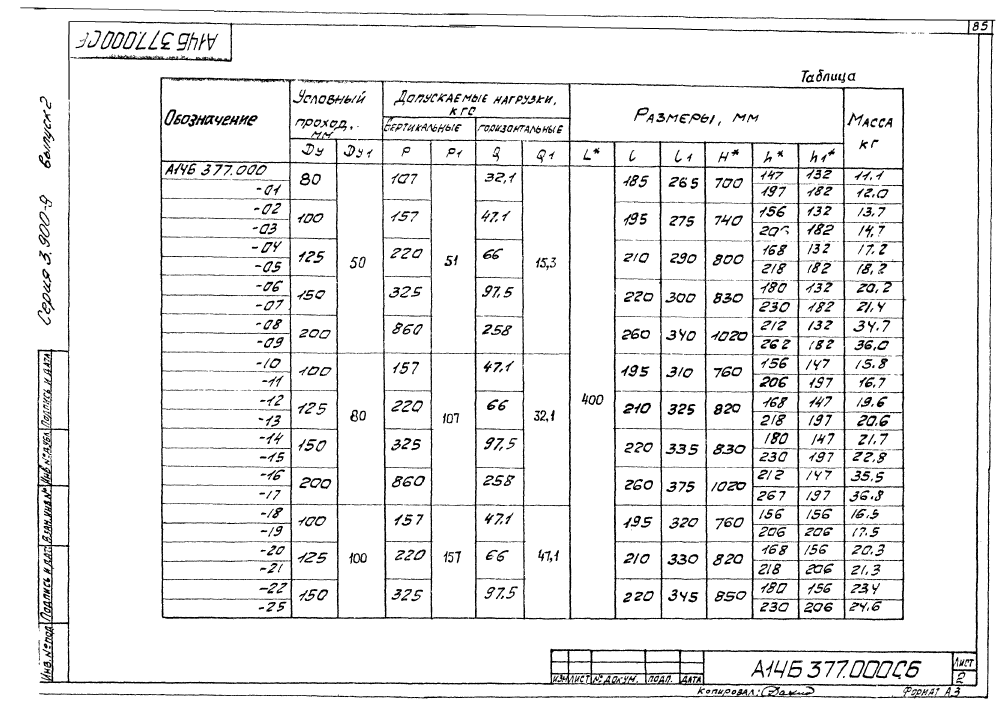 85
А14Б 377.000 СБ
Серия 3.900-9 выпуск 2
Таблица
Обозначение | Условный проход, мм | Допускаемые нагрузки, кгс | Размеры, мм | Масса кг
вертикальные | горизонтальные
Dу | Dу1 | P | P1 | Q | Q1 | L* | l | l1 | H* | h* | h1*
А14Б 377.000 | 80 | 50 | 107 | 51 | 32,1 | 15,3 | 400 | 185 | 265 | 700 | 147 | 132 | 11.1
-01 | 197 | 182 | 12.0
-02 | 100 | 157 | 47.1 | 195 | 275 | 740 | 156 | 132 | 13.7
-03 | 206 | 182 | 14,7
-04 | 125 | 220 | 66 | 210 | 290 | 800 | 168 | 132 | 17.2
-05 | 218 | 182 | 18,2
-06 | 150 | 325 | 97,5 | 220 | 300 | 830 | 180 | 132 | 20,2
-07 | 230 | 182 | 21,4
-08 | 200 | 860 | 258 | 260 | 340 | 1020 | 212 | 132 | 34.7
-09 | 262 | 182 | 36,0
-10 | 100 | 80 | 157 | 107 | 47.1 | 32,1 | 195 | 310 | 760 | 156 | 147 | 15.8
-11 | 206 | 197 | 16.7
-12 | 125 | 220 | 66 | 210 | 325 | 820 | 168 | 147 | 19.6
-13 | 218 | 197 | 20.6
-14 | 150 | 325 | 97,5 | 220 | 335 | 830 | 180 | 147 | 21.7
-15 | 230 | 197 | 22.8
-16 | 200 | 860 | 258 | 260 | 375 | 1020 | 212 | 147 | 35,5
-17 | 267 | 197 | 36.8
-18 | 100 | 100 | 157 | 157 | 47.1 | 47,1 | 195 | 320 | 760 | 156 | 156 | 16.5
-19 | 206 | 206 | 17.5
-20 | 125 | 220 | 66 | 210 | 330 | 820 | 168 | 156 | 20.3
-21 | 218 | 206 | 21,3
-22 | 150 | 325 | 97.5 | 220 | 345 | 850 | 180 | 156 | 23.4
-25 | 230 | 206 | 24,6
Инв.№подл. Подпись и дата Взам.инв.№ Инв.№дубл. Подпись и дата
Изм Лист № докум. Подп. Дата
А14Б 377.000СБ
Лист
2
Копировал:
Формат А3